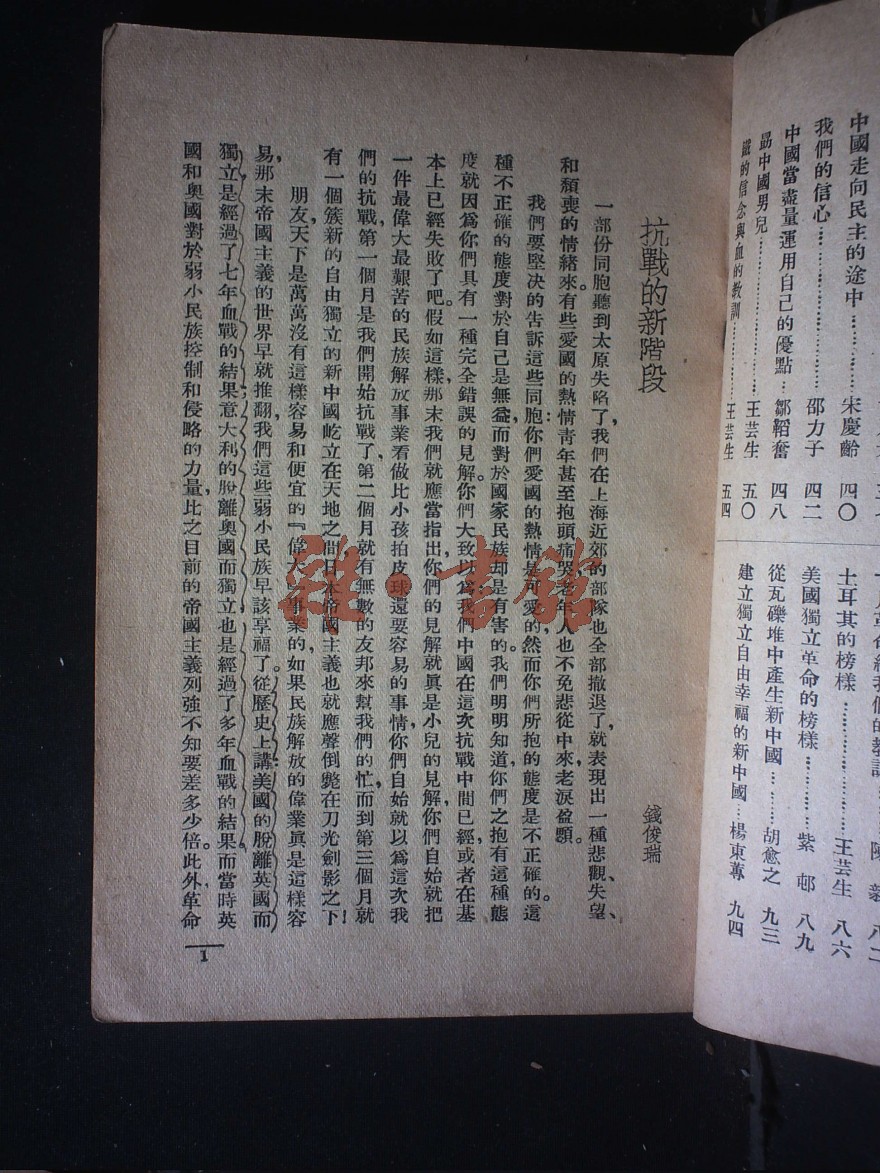 中國走向民主的途中………宋慶齡 四〇
我們的信心………………邵力子 四二
中國當盡量運用自己的優點…鄒韜奮 四八
勗中國男兒………………王芸生 五〇
鐵的信念與血的教訓…………王芸生 五四
土耳其的榜樣………………王芸生 八六
美國獨立革命的榜樣…………紫邨 八九
從瓦礫堆中產生新中國……胡愈之 九三
建立獨立自由幸福的新中國…楊東蓴 九四
抗戰的新階段
錢俊瑞
一部份同胞聽到太原失陷了,我們在上海近郊的部隊也全部撤退了,就表現出一種悲觀、失望、
和頹喪的情緒來。有些愛國的熱情青年甚至抱頭痛哭,老年人也不免悲從中來,老淚盈顋。
我們要堅決的告訴這些同胞:你們愛國的熱情是可愛的,然而你們所抱的態度是不正確的。這
種不正確的態度對於自己是無益,而對於國家民族却是有害的。我們明明知道,你們之抱有這種態
度就因爲你們具有一種完全錯誤的見解。你們大致以爲我們中國在這次抗戰中間已經或者在基
本上已經失敗了吧。假如這樣,那末我們就應當指出,你們的見解就眞是小兒的見解,你們自始就把
一件最偉大最艱苦的民族解放事業看做比小孩拍皮球還要容易的事情,你們自始就以爲這次我
們的抗戰,第一個月是我們開始抗戰了,第二個月就有無數的友邦來幫我們的忙,而到第三個月就
有一個簇新的自由獨立的新中國屹立在天地之間,日本帝國主義也就應聲倒斃在刀光劍影之下!
朋友,天下是萬萬沒有這樣容易和便宜的『偉大』事業的,如果民族解放的偉業眞是這樣容
易,那末帝國主義的世界早就推翻,我們這些弱小民族早該享福了。從歷史上講,美國的脫離英國而
獨立是經過了七年血戰的結果,意大利的脫離奧國而獨立也是經過了多年血戰的結果,而當時英
國和奧國對於弱小民族控制和侵略的力量,比之目前的帝國主義列強不知要差多少倍。此外,革命
1
雜·書館